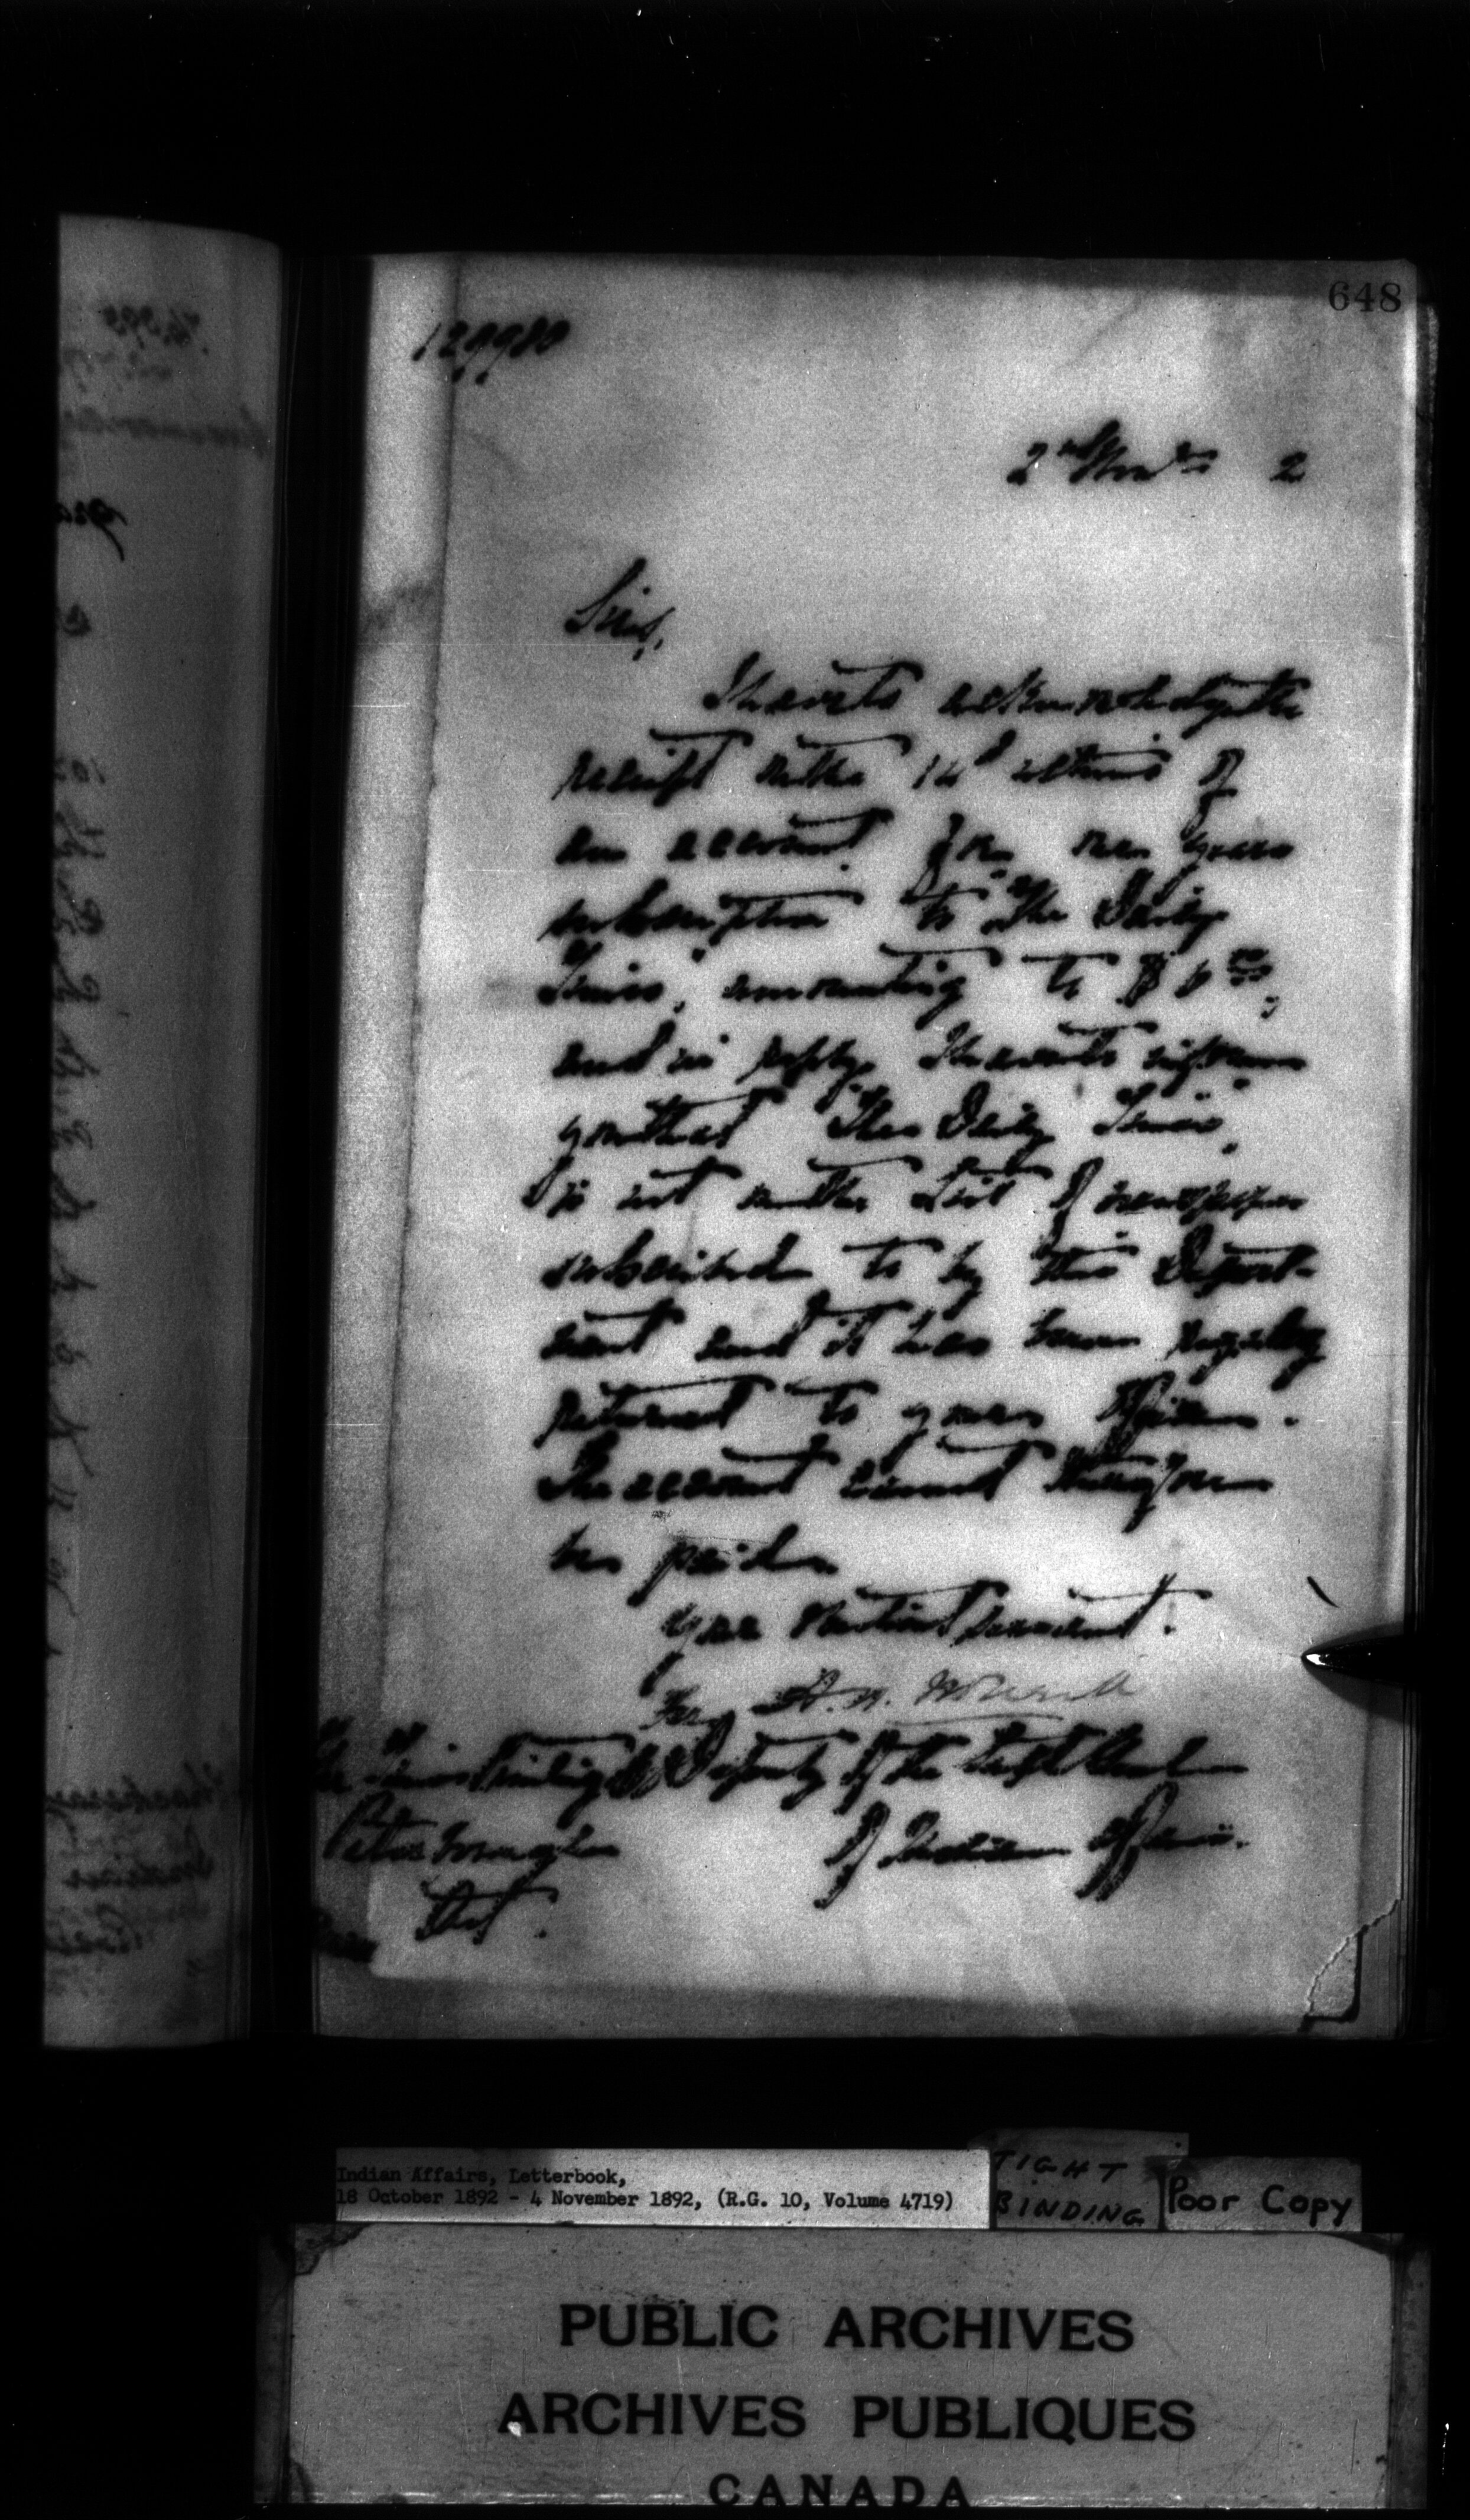 648
129980
2nd Novr 2
Sirs,
I have to acknowledge the
receipt on the ultimo of
an account for one years
subscription to "The Daily
Times", amounting to $6 00/100,
and in reply I have to inform
you that "The Daily Times"
is not on the List of newspapers
subscribed to by this Depart-
ment and it has been regularly
returned to your Office.
The account cannot therefore
be paid.
Your obedient servant.
For
The Times Printing Co Deputy of the Supt General
Peterborough of Indian Affairs.
Ont.
Indian Affairs, Letterbook,
18 October 1892 - 4 November 1892, (R.G. 10, Volume 4719)
TIGHT
BINDING
Poor Copy
PUBLIC ARCHIVES
ARCHIVES PUBLIQUES
CANADA